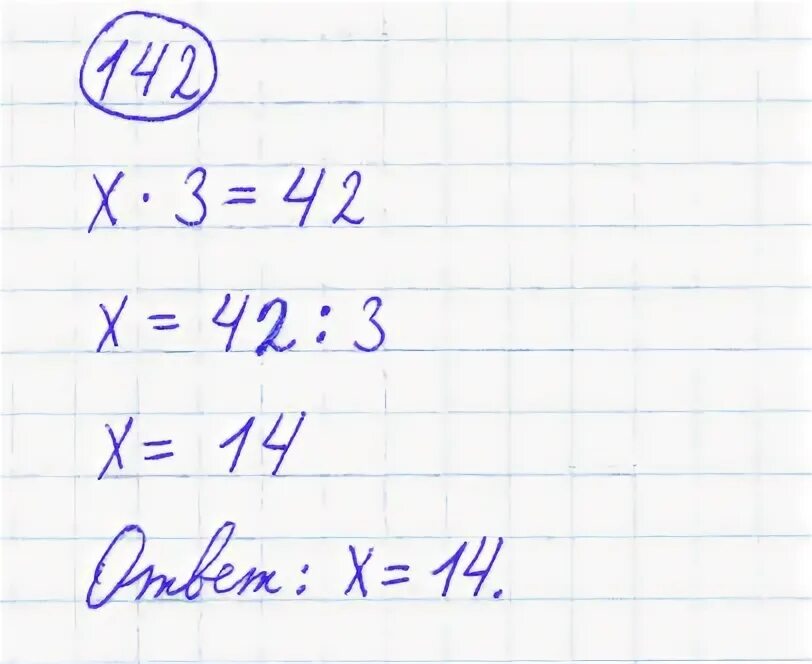 142
x · 3 = 42
x = 42 : 3
x = 14
Ответ: x = 14.